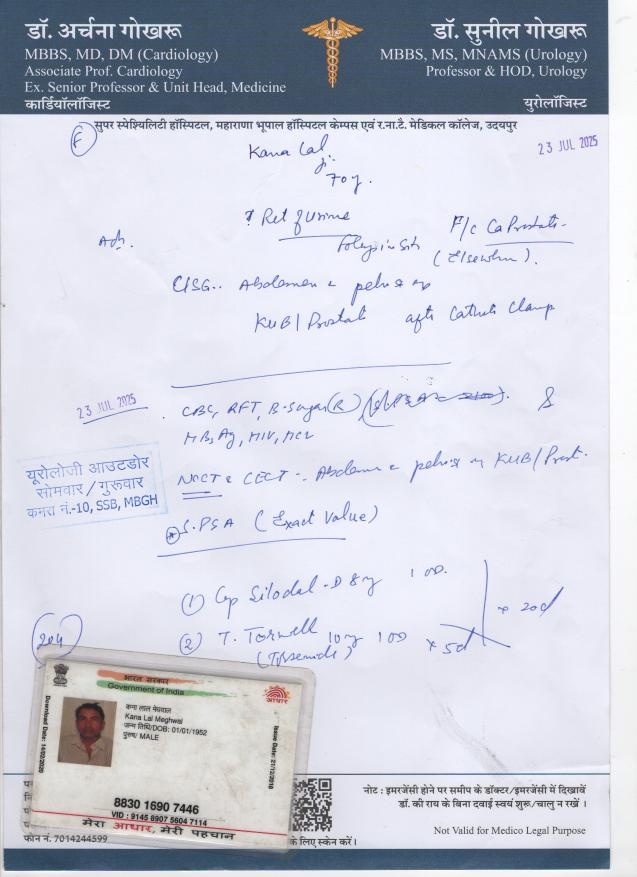 डॉ. अर्चना गोखरू
MBBS, MD, DM (Cardiology)
Associate Prof. Cardiology
Ex. Senior Professor & Unit Head, Medicine
कार्डियॉलॉजिस्ट
डॉ. सुनील गोखरू
MBBS, MS, MNAMS (Urology)
Professor & HOD, Urology
युरोलॉजिस्ट
सुपर स्पेश्यिलिटी हॉस्पिटल, महाराणा भूपाल हॉस्पिटल केम्पस एवं र.ना.टै. मेडिकल कॉलेज, उदयपुर
23 JUL 2025
Kana Lal
ji
70 y.
? Ret of Urine
F/c Ca Prostate
Adv.
(Elsewhere).
USG.. Abdomen & pelvis
KUB/Prostate after Catheter Clamp
23 JUL 2025
CBC, RFT, B. Sugar (R)
HBsAg, HIV, HCV
NCCT & CECT - Abdomen & pelvis KUB/Prost.
S. PSA (Exact Value)
यूरोलोजी आउटडोर
सोमवार/गुरूवार
कमरा नं.-10, SSB, MBGH
(1) Cap Silodal-D 8mg 1 OD.
x 20d
(2) T. 10mg 1 OD x 5d
(Torsemide)
204
भारत सरकार
Government of India
आधार
कना लाल मेघवाल
Kana Lal Meghwal
जन्म तिथि/DOB: 01/01/1952
पुरुष/ MALE
Download Date: 14/02/2020
Issue Date: 21/12/2018
8830 1690 7446
VID : 9145 8907 5604 7114
मेरा आधार, मेरी पहचान
फोन नं. 7014244599
के लिए स्केन करें।
नोट : इमरजेंसी होने पर समीप के डॉक्टर/इमरजेंसी में दिखावें
डॉ. की राय के बिना दवाई स्वयं शुरू/चालु न रखें ।
Not Valid for Medico Legal Purpose